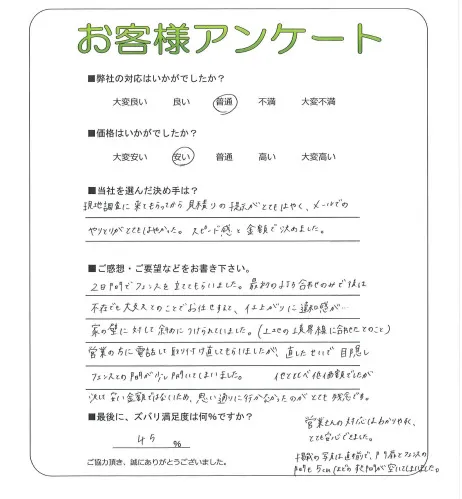 お客様アンケート
■弊社の対応はいかがでしたか？
大変良い　良い　普通　不満　大変不満
■価格はいかがでしたか？
大変安い　安い　普通　高い　大変高い
■当社を選んだ決め手は？
現地調査に来てもらってから見積りの提示がとてもはやく、メールでの
やりとりがとてもはやかった。スピード感と金額で決めました。
■ご感想・ご要望などをお書き下さい。
2日間でフェンスを立ててもらいました。最初の打ち合わせのみで後は
不在でも大丈夫とのことでお任せすると、仕上がりに違和感が…
家の壁に対して斜めにつけられていました。(土地の境界線に合わせたとのこと)
営業の方に電話して取り付け直してもらいましたが、直したせいで目隠し
フェンスとの間が少し開いてしまいました。　他と比べ低価額でしたが
決して安い金額ではないため、思い通りに行かなかったのがとても残念です。
■最後に、ズバリ満足度は何%ですか？
45 %
営業さんの対応はわかりやすく、
とても安心できました。
掲載の写真は直前で、門扉とフェンスの
間も5cmほどのすき間が空いてしまいました。
ご協力頂き、誠にありがとうございました。